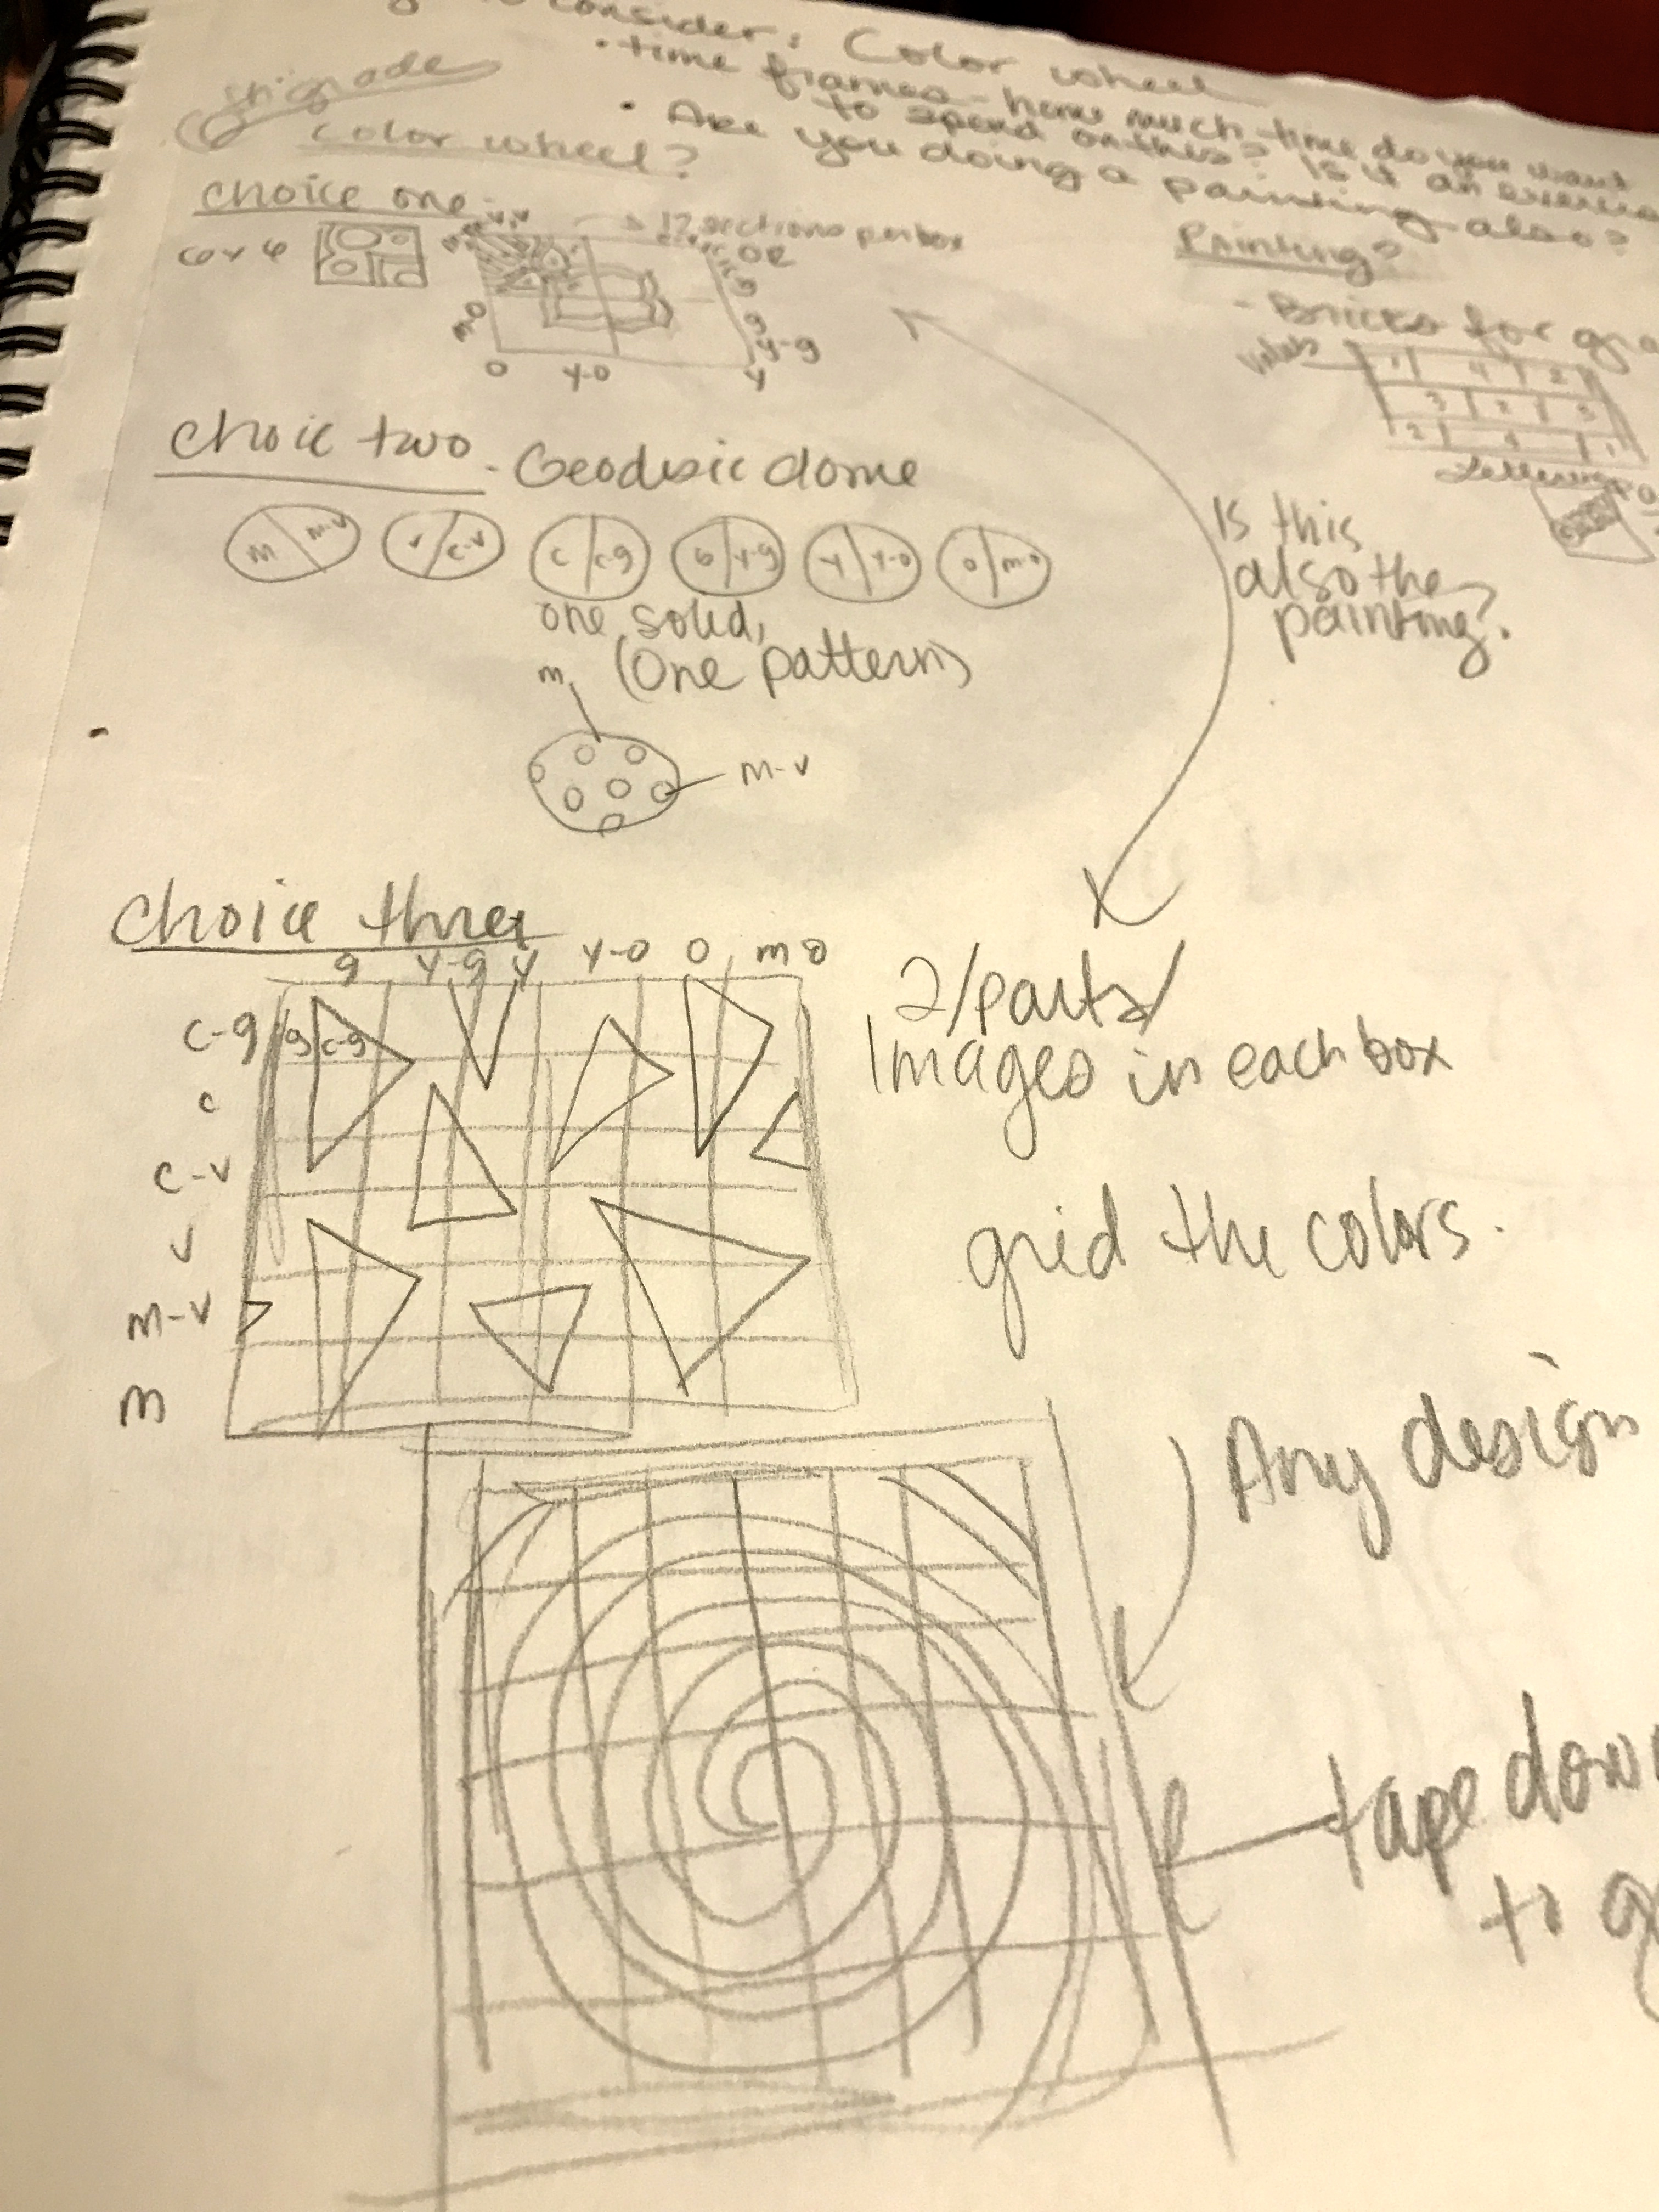 consider: Color wheel
• time frames - how much time do you want
to spend on this? Is it an
• Are you doing a painting also?
6th grade
Color wheel?
Choice one -
6 x 6
12 sections per box
m-o
O
Y-O
Y
Y-g
g
Painting?
- Bricks for
values
1 4 2
3 2 5
2 4 1
Choic two - Geodesic dome
m m-v
v c-v
c c-g
G Y-g
Y Y-O
O m-o
one solid,
(One pattern)
m
m-v
Is this
also the
painting?
Choice three
g Y-g Y Y-O O m o
c-g
g c-g
c
c-v
v
m-v
m
2/parts/
Images in each box
grid the colors.
Any design
tape down
to